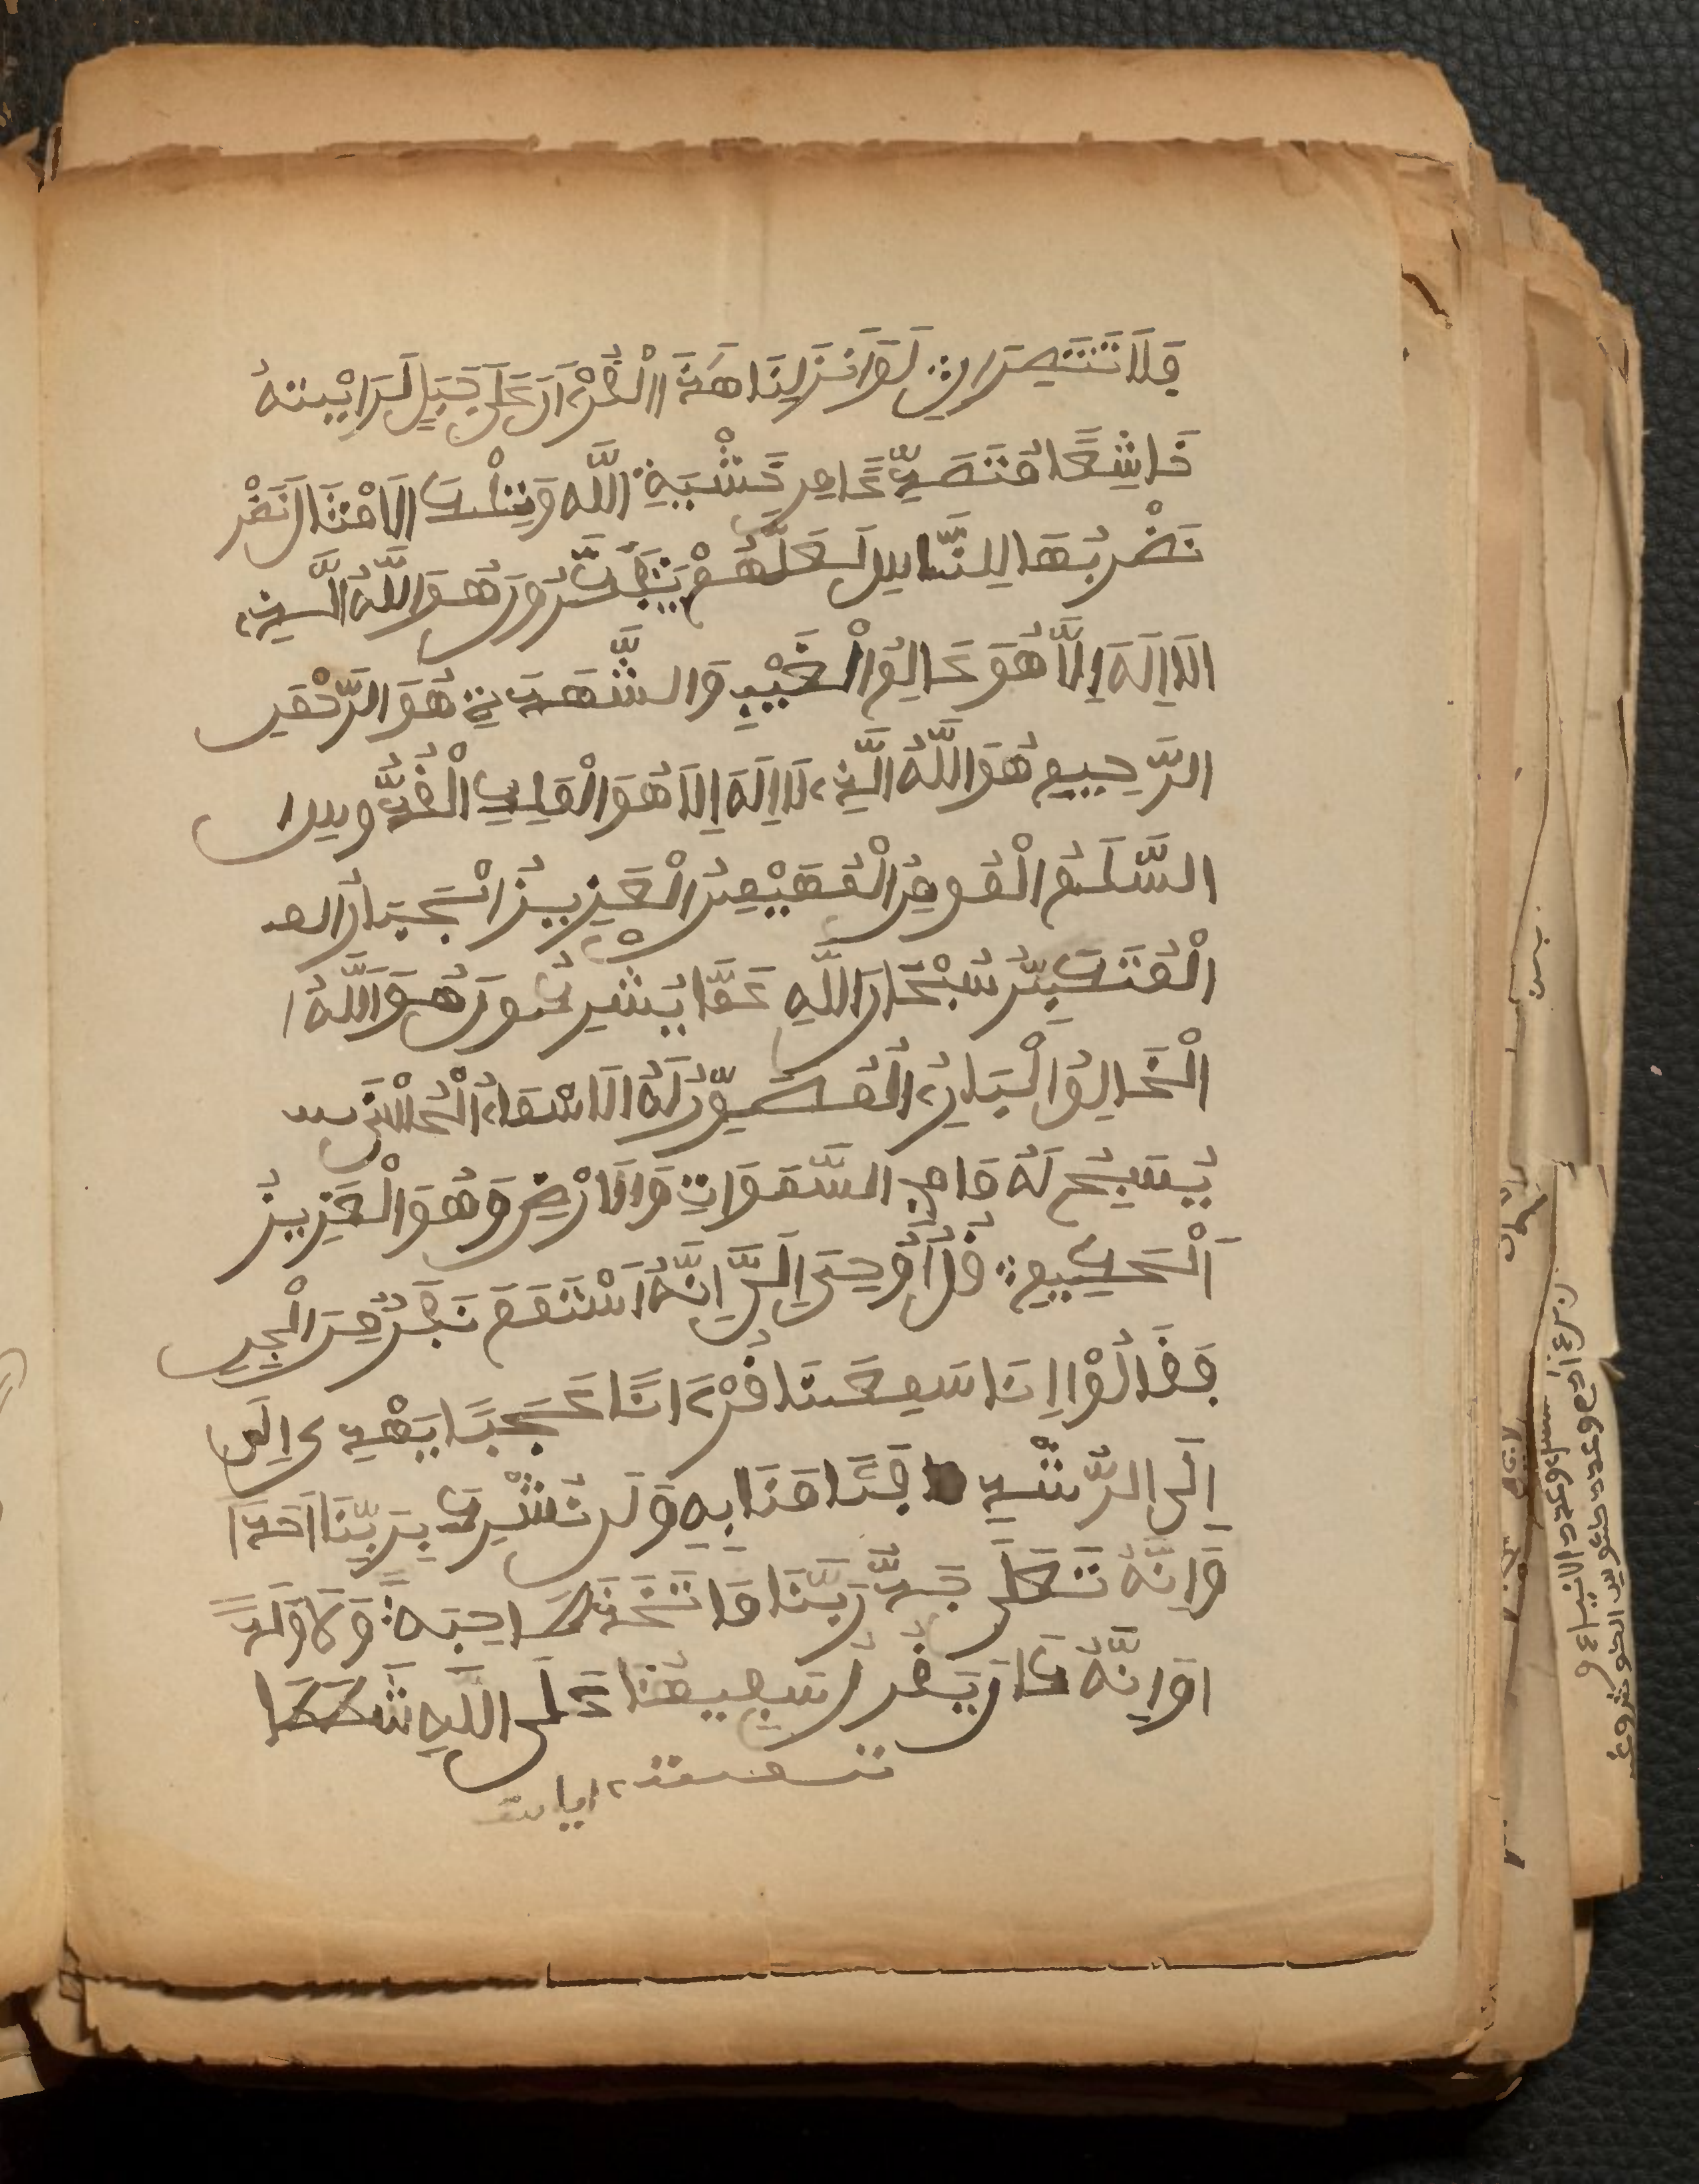 فَلَا تَنتَصِرَانِ لَوَانْزَلْنَا هَٰذَا الْقُرْءَانَ عَلَىٰ جَبَلٍ لَرَأيْتَهُ
خَاشِعًا مُتَصَدِّعًا مِنْ خَشْيَةِ اللَّهِ وَتِلْكَ الَامْثَالُ نَضْر
نَضْرِبُهَا لِلنَّاسِ لَعَلَّهُمْ يَتَفَكَّرُونَ هُوَ اللَّهُ الَّذِي
لَا إِلَهَ إِلَّا هُوَ عَالِمُ الْغَيْبِ وَالشَّهَدَةِ هُوَ الرَّحْمَنُ
الرَّحِيمِ هُوَ اللَّهُ الَّذِي لَا إِلَهَ إِلَّا هُوَ الْمَلِكِ الْقُدُّوسُ
السَّلَمُ الْمُومِنُ الْمُهَيْمِنُ الْعَزِيزُ الْجَبَارُ الم
الْمُتَكَبِّرُ سُبْحَانَ اللَّهِ عَمَّا يُشْرِكُونَ هُوَ اللَّهُ ا
الْخَالِقُ الْبَارِئُ الْمُصَوِّرُ لَهُ الَاسْمَاءُ الْحُسْنَى
يُسَبِّحُ لَهُ مَا فِي السَّمَوَاتِ وَالَارْضِ وَهُوَ الْعَزِيزُ
الْحَكِيمِ قُلْ أُوحِيَ إِلَيَّ إِنَّهُ اسْتَمَعَ نَفَرٌ مِنَ الْجِنِّ
فَقَالُوْا إِنَا سَمِعْنَا قُرْءَانًا عَجَبًا يَهْدِي إِلَى
إِلَى الرُّشْدِ فَئَامَنَا بِهِ وَلَن نُشْرِكَ بِرَبِّنَا أَحَدًا
وَإِنَّهُ تَعَلَى جَدُّ رَبِّنَا مَا تَّخَذَ صَاحِبَةً وَلَا وَلَدًا
اوَإِنَّهُ كَانَ يَقُولُ سَفِيهُنَا عَلَى اللَّهِ شَطَطَا
تمت ايات